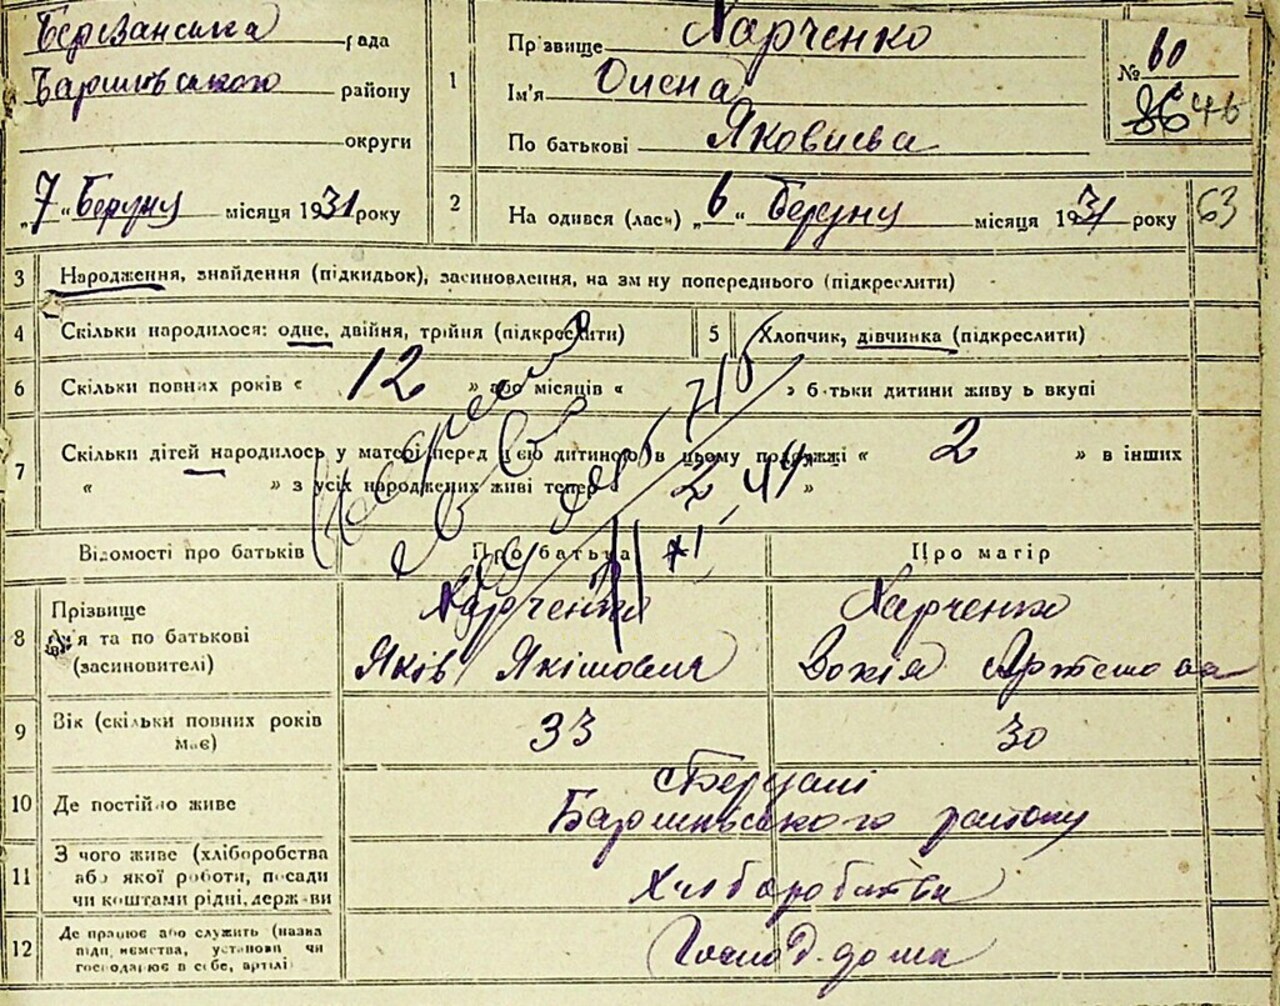 Березанська рада
Баришівського району
округи
„7“ Березня місяця 1931 року
1
Прізвище Харченко
Ім'я Олена
По батькові Яковлева
№ 60
86 46
2
На одився (лась) „6“ березня місяця 1931 року
63
3 Народження, знайдення (підкидьок), засиновлення, на зм ну попереднього (підкреслити)
4 Скільки народилося: одне, двійня, трійня (підкреслити)
5 Хлопчик, дівчинка (підкреслити)
6 Скільки повних років « 12 » або місяців « » б тьки дитини живу ь вкупі
7 Скільки дітей народилось у матері перед цією дитиною в цьому подружжі « 2 » в інших
« » з усіх народжених живі тепер « 2 »
Відомості про батьків
Про батька
Про матір
8 Прізвище
я та по батькові
(засиновителі)
Харченко
Яків Якимович
Харченко
Артемова
9 Вік (скільки повних років
має)
33
30
10 Де постійно живе
Березані
Баришівського району
11 З чого живе (хліборобства
або якої роботи, посади
чи коштами рідні, держ-ви
Хліборобства
12 Де працює або служить (назва
підп ємства, установи чи
господарює в себе, артілі
Господ. дома